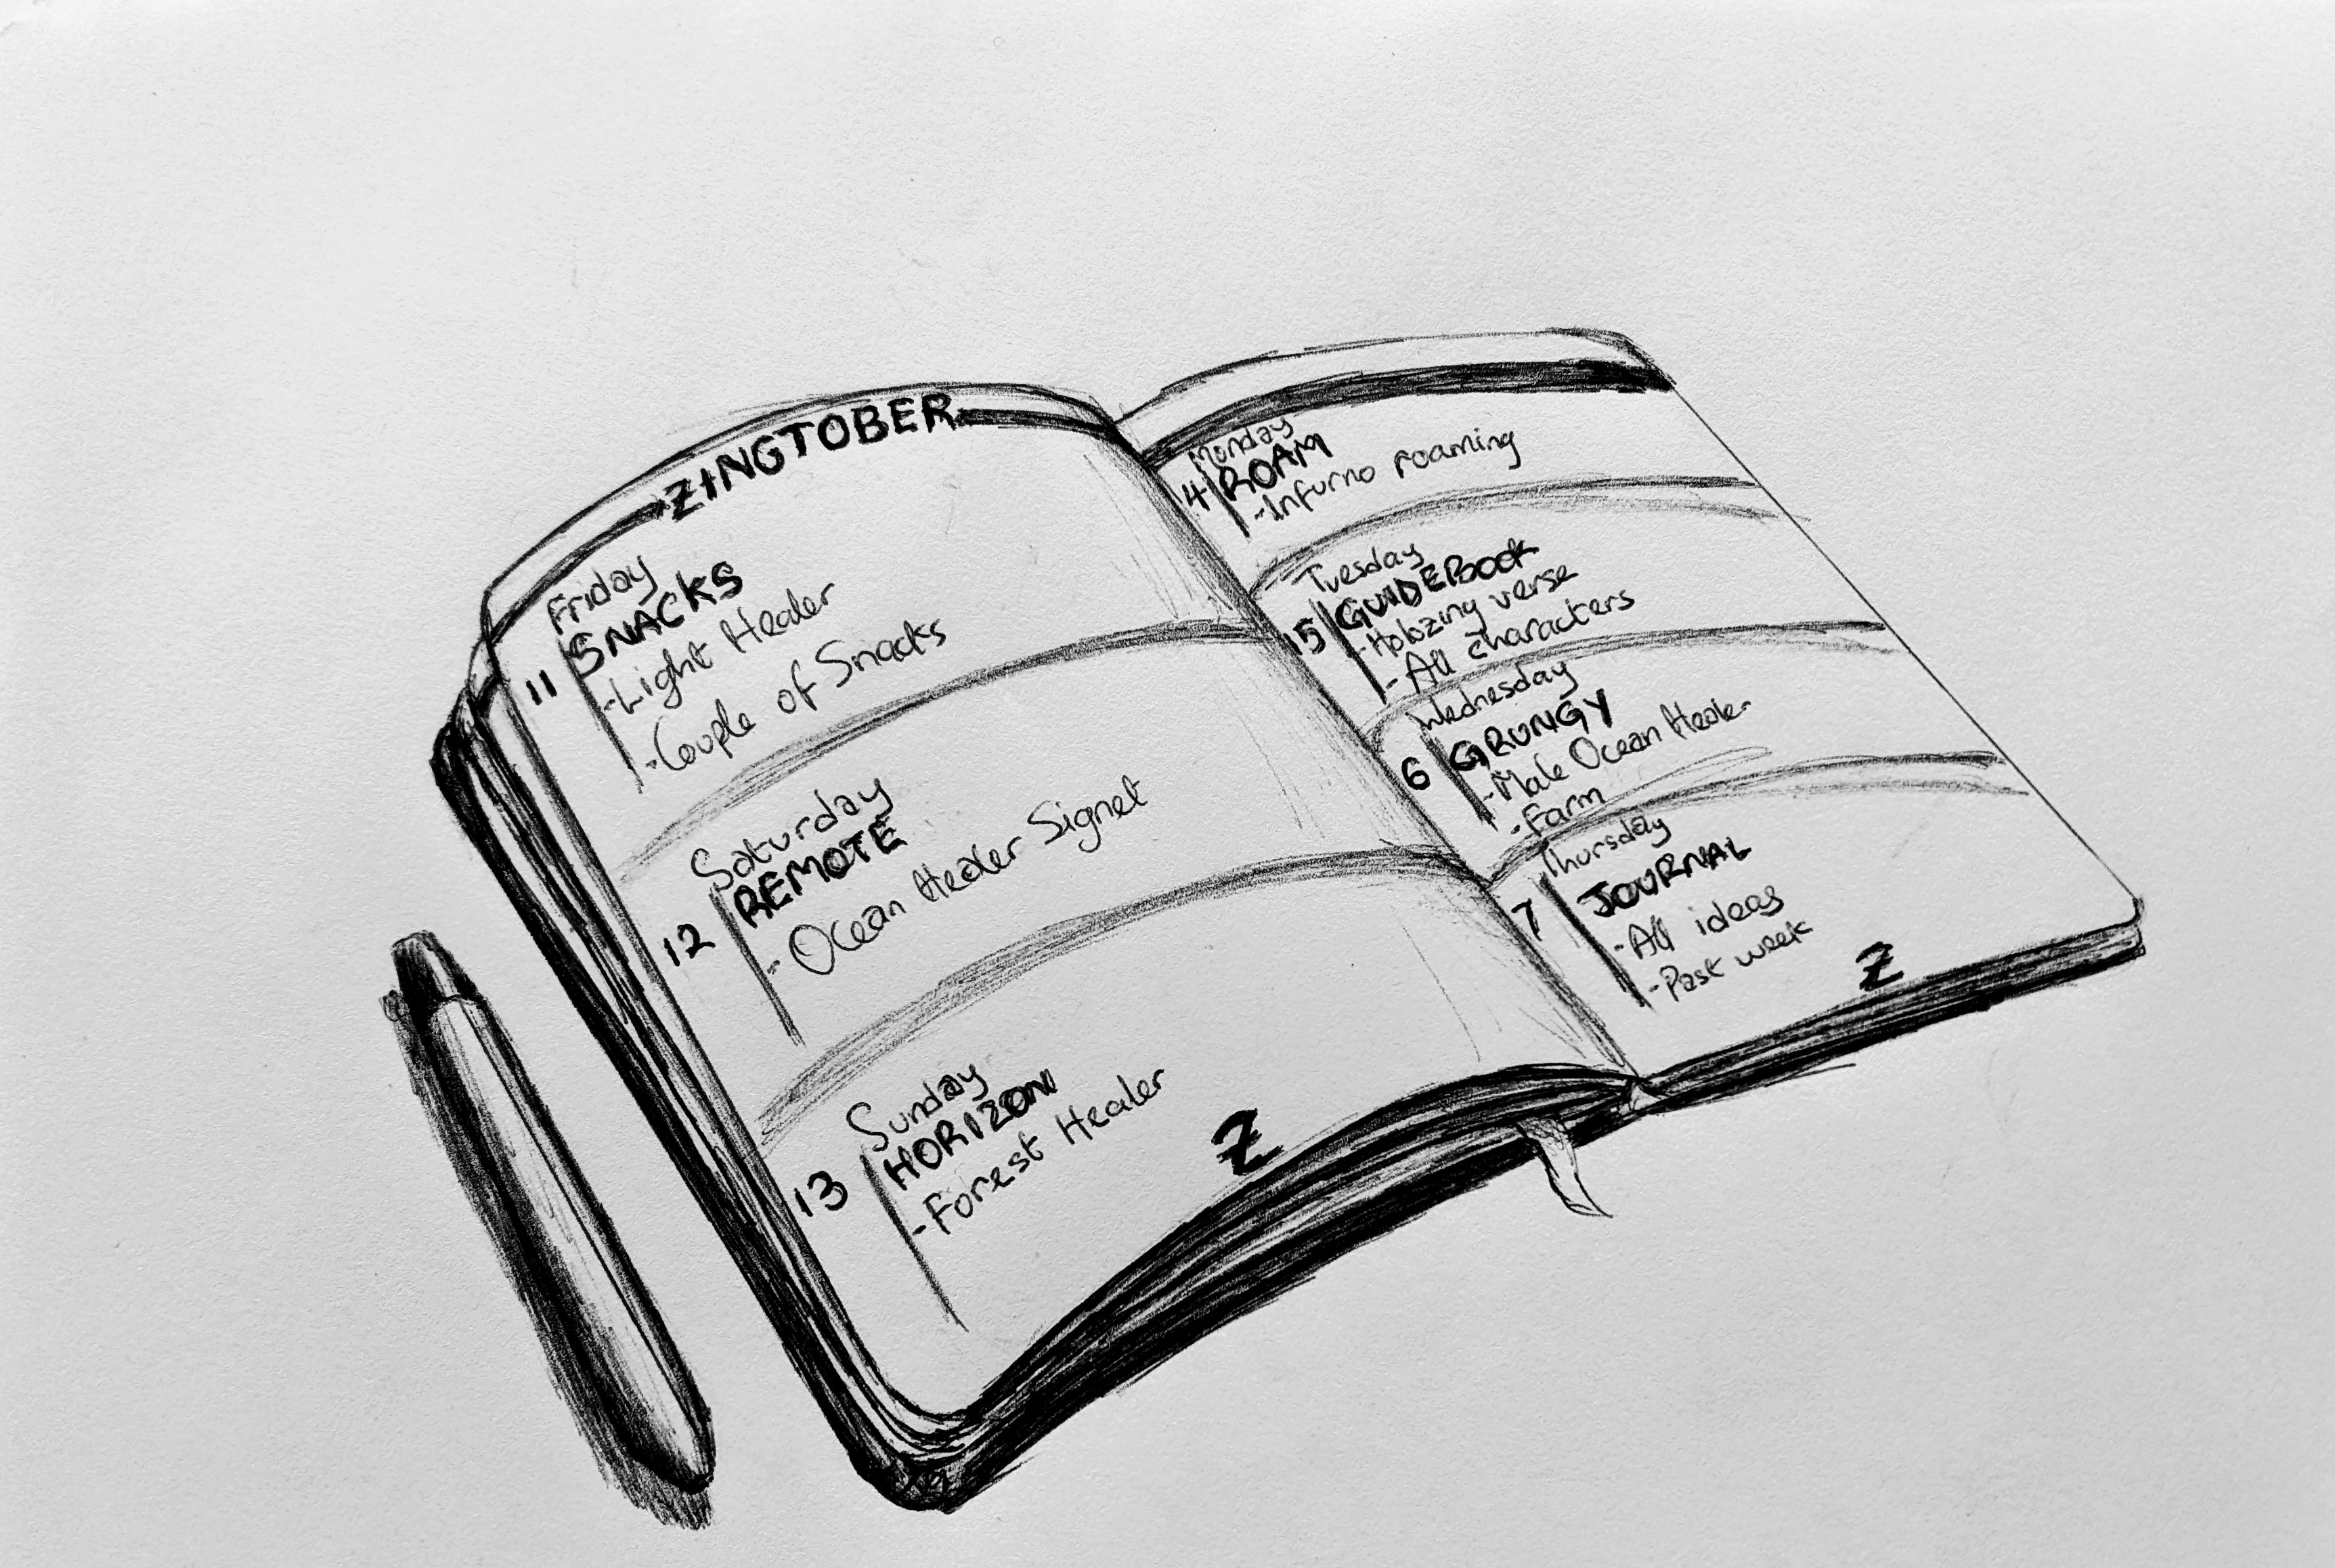 ZINGTOBER
Friday
11 SNACKS
-Light Healer
-Couple of Snacks
Saturday
12 REMOTE
- Ocean Healer Signet
Sunday
13 HORIZON
-Forest Healer
Z
Monday
14 ROAM
-Infurno roaming
Tuesday
15 GUIDEBOOK
-Holozing verse
- All characters
Wednesday
6 GRUNGY
-Male Ocean Healer
-Farm
Thursday
7 JOURNAL
-All ideas
-Past week
Z